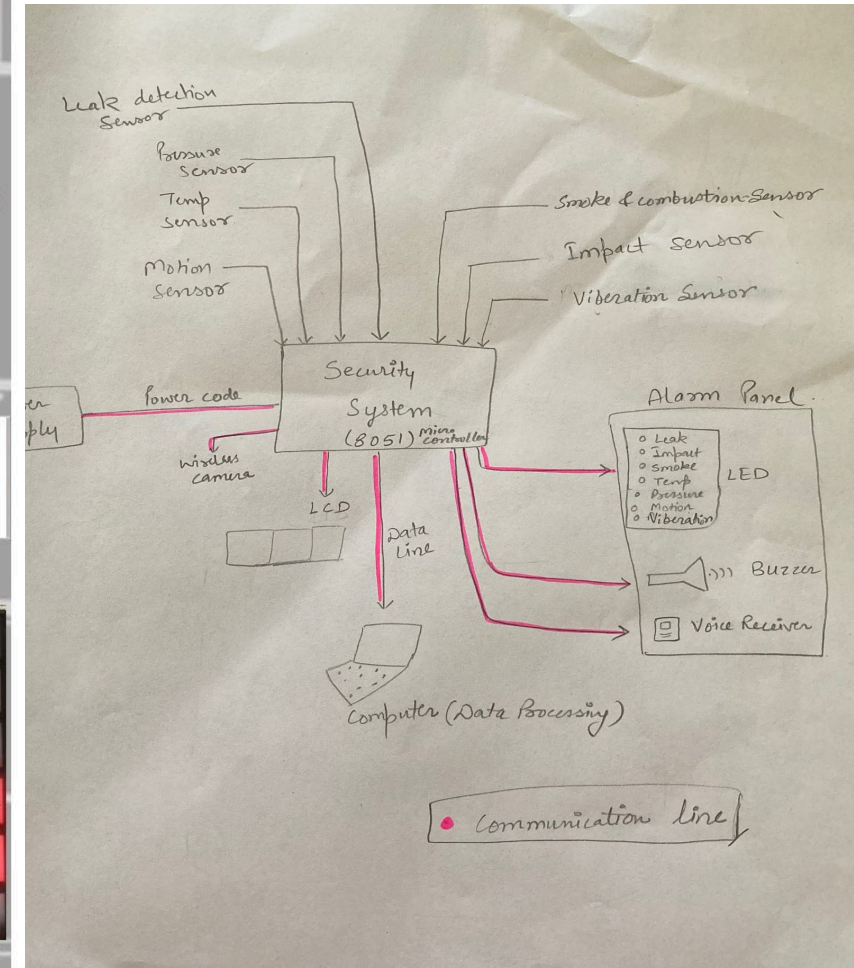 Leak detection
Sensor
Pressure
Sensor
Temp
Sensor
Motion
Sensor
Smoke & combustion Sensor
Impact Sensor
Viberation Sensor
Security
System
(8051) Micro
controller
er
ply
Power code
Wireless
Camera
LCD
Data
Line
Computer (Data Processing)
Alarm Panel.
Leak
Impact
Smoke
Temp
Pressure
Motion
Viberation
LED
Buzzer
Voice Receiver
Communication line